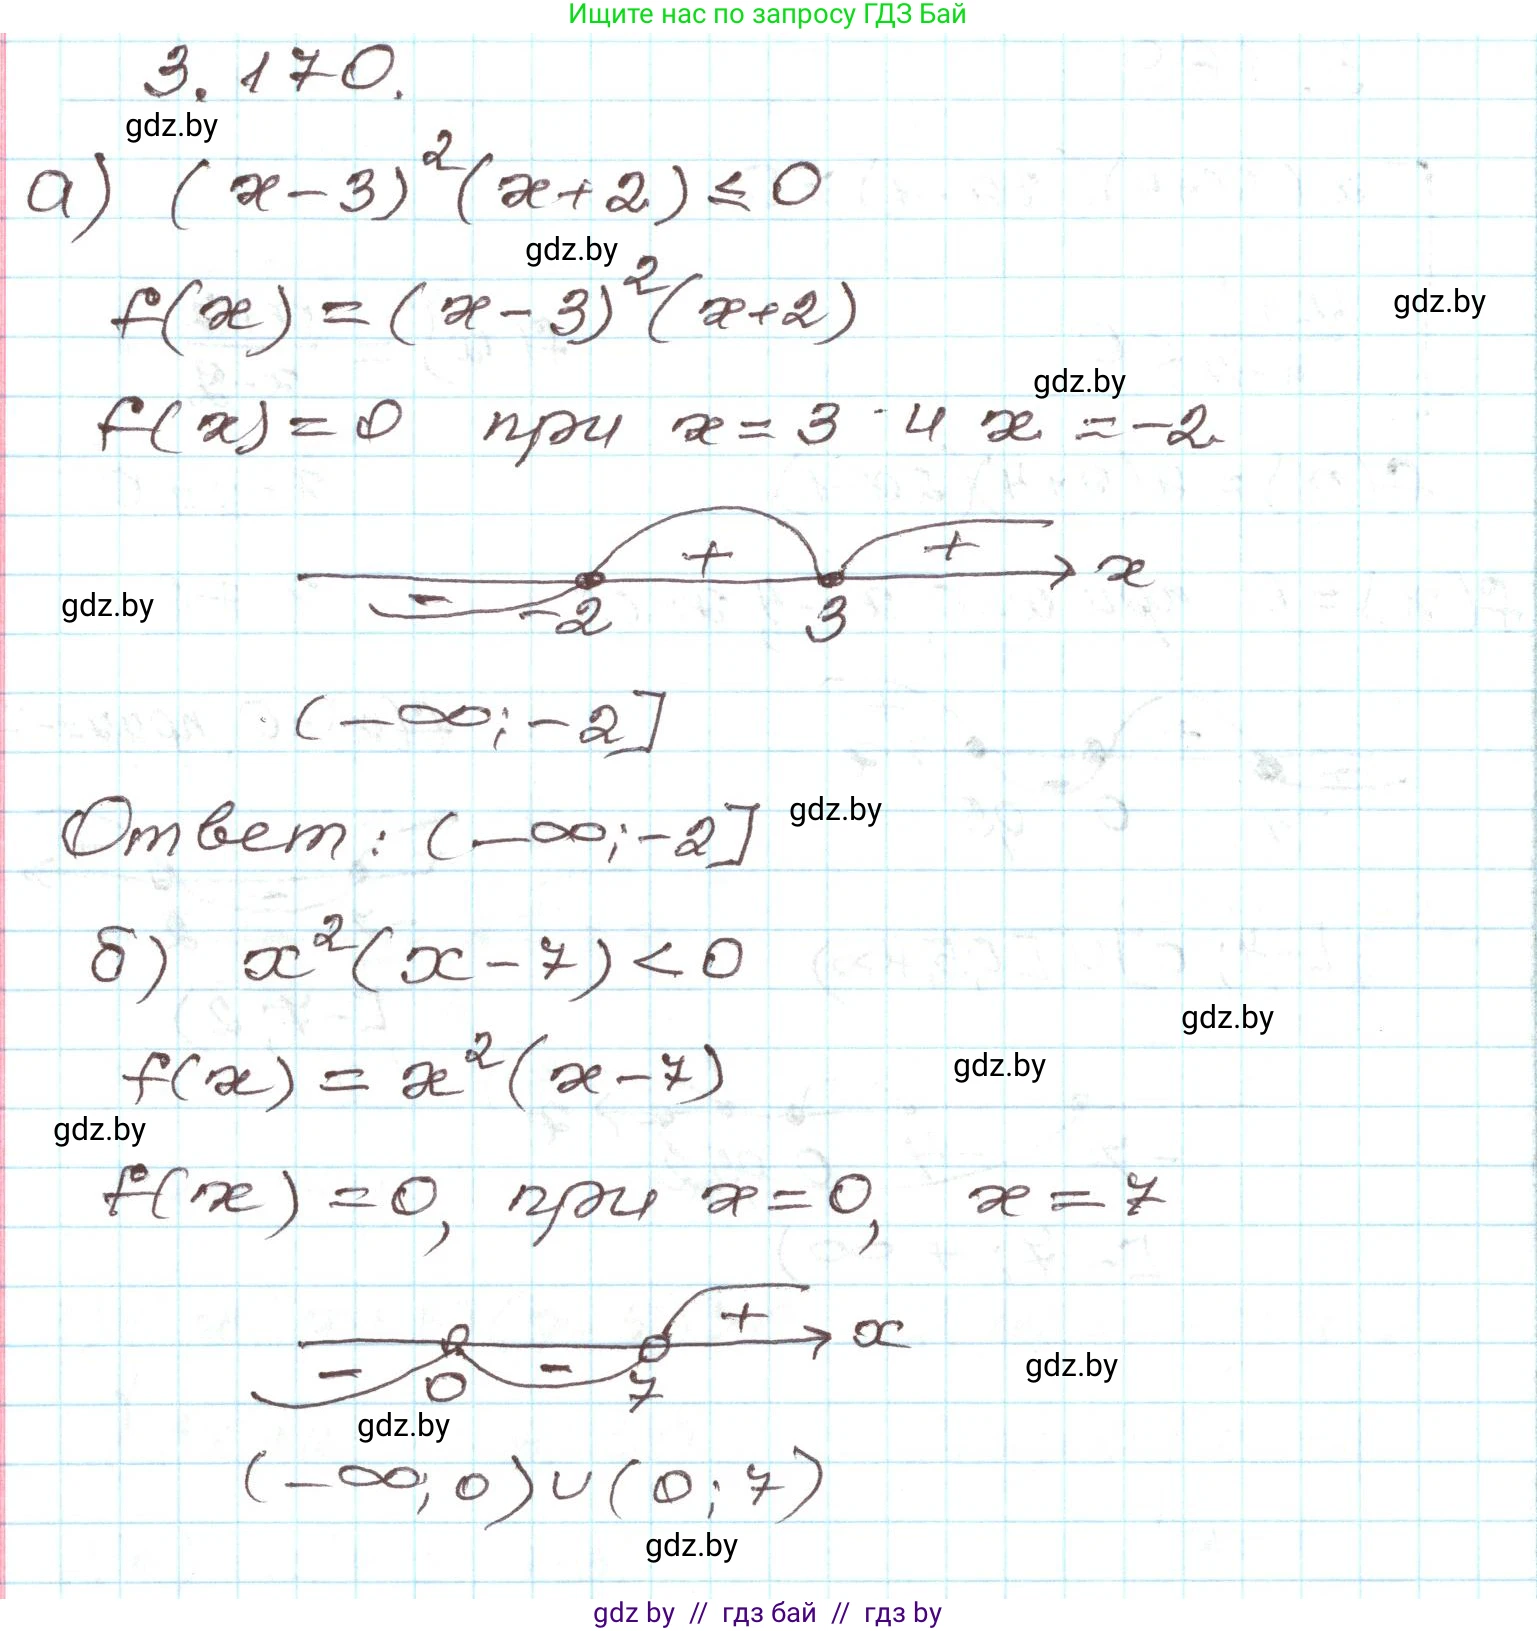 Ищите нас по запросу ГДЗ Бай
3.170.
gdz.by
а) (x-3)²(x+2)≤0
gdz.by
f(x)=(x-3)²(x+2)
gdz.by
gdz.by
f(x)=0 при x=3 и x=-2
+ + x
- -2 3
gdz.by
(-∞;-2]
Ответ: (-∞;-2]
gdz.by
б) x²(x-7)<0
gdz.by
f(x)=x²(x-7)
gdz.by
gdz.by
f(x)=0, при x=0, x=7
+ x
- 0 - 7
gdz.by
gdz.by
(-∞;0)∪(0;7)
gdz.by
gdz by // гдз бай // гдз by